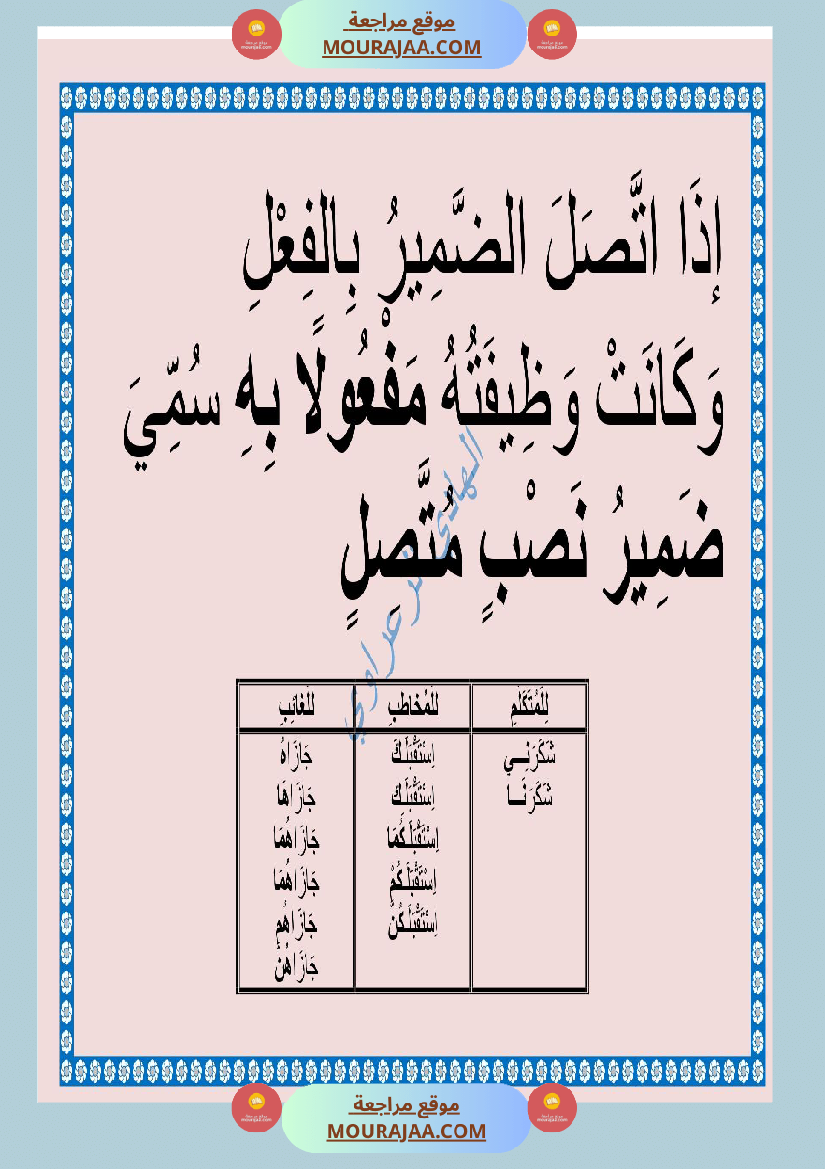 موقع مراجعة
MOURAJAA.COM
إِذَا اتَّصَلَ الضَّمِيرُ بِالْفِعْلِ
وَكَانَتْ وَظِيفَتُهُ مَفْعُولًا بِهِ سُمِّيَ
ضَمِيرُ نَصْبٍ مُتَّصَلٍ
لِلْمُتَكَلِّمِ لِلْمُخَاطَبِ لِلْغَائِبِ
شَكَرَنِــي اِسْتَقْبَلَــكَ جَازَاهُ
شَكَرَنَــا اِسْتَقْبَلَــكِ جَازَاهَا
اِسْتَقْبَلَــكُمَا جَازَاهُمَا
اِسْتَقْبَلَــكُمْ جَازَاهُمَا
اِسْتَقْبَلَــكُنَّ جَازَاهُمْ
جَازَاهُنَّ
موقع مراجعة
MOURAJAA.COM